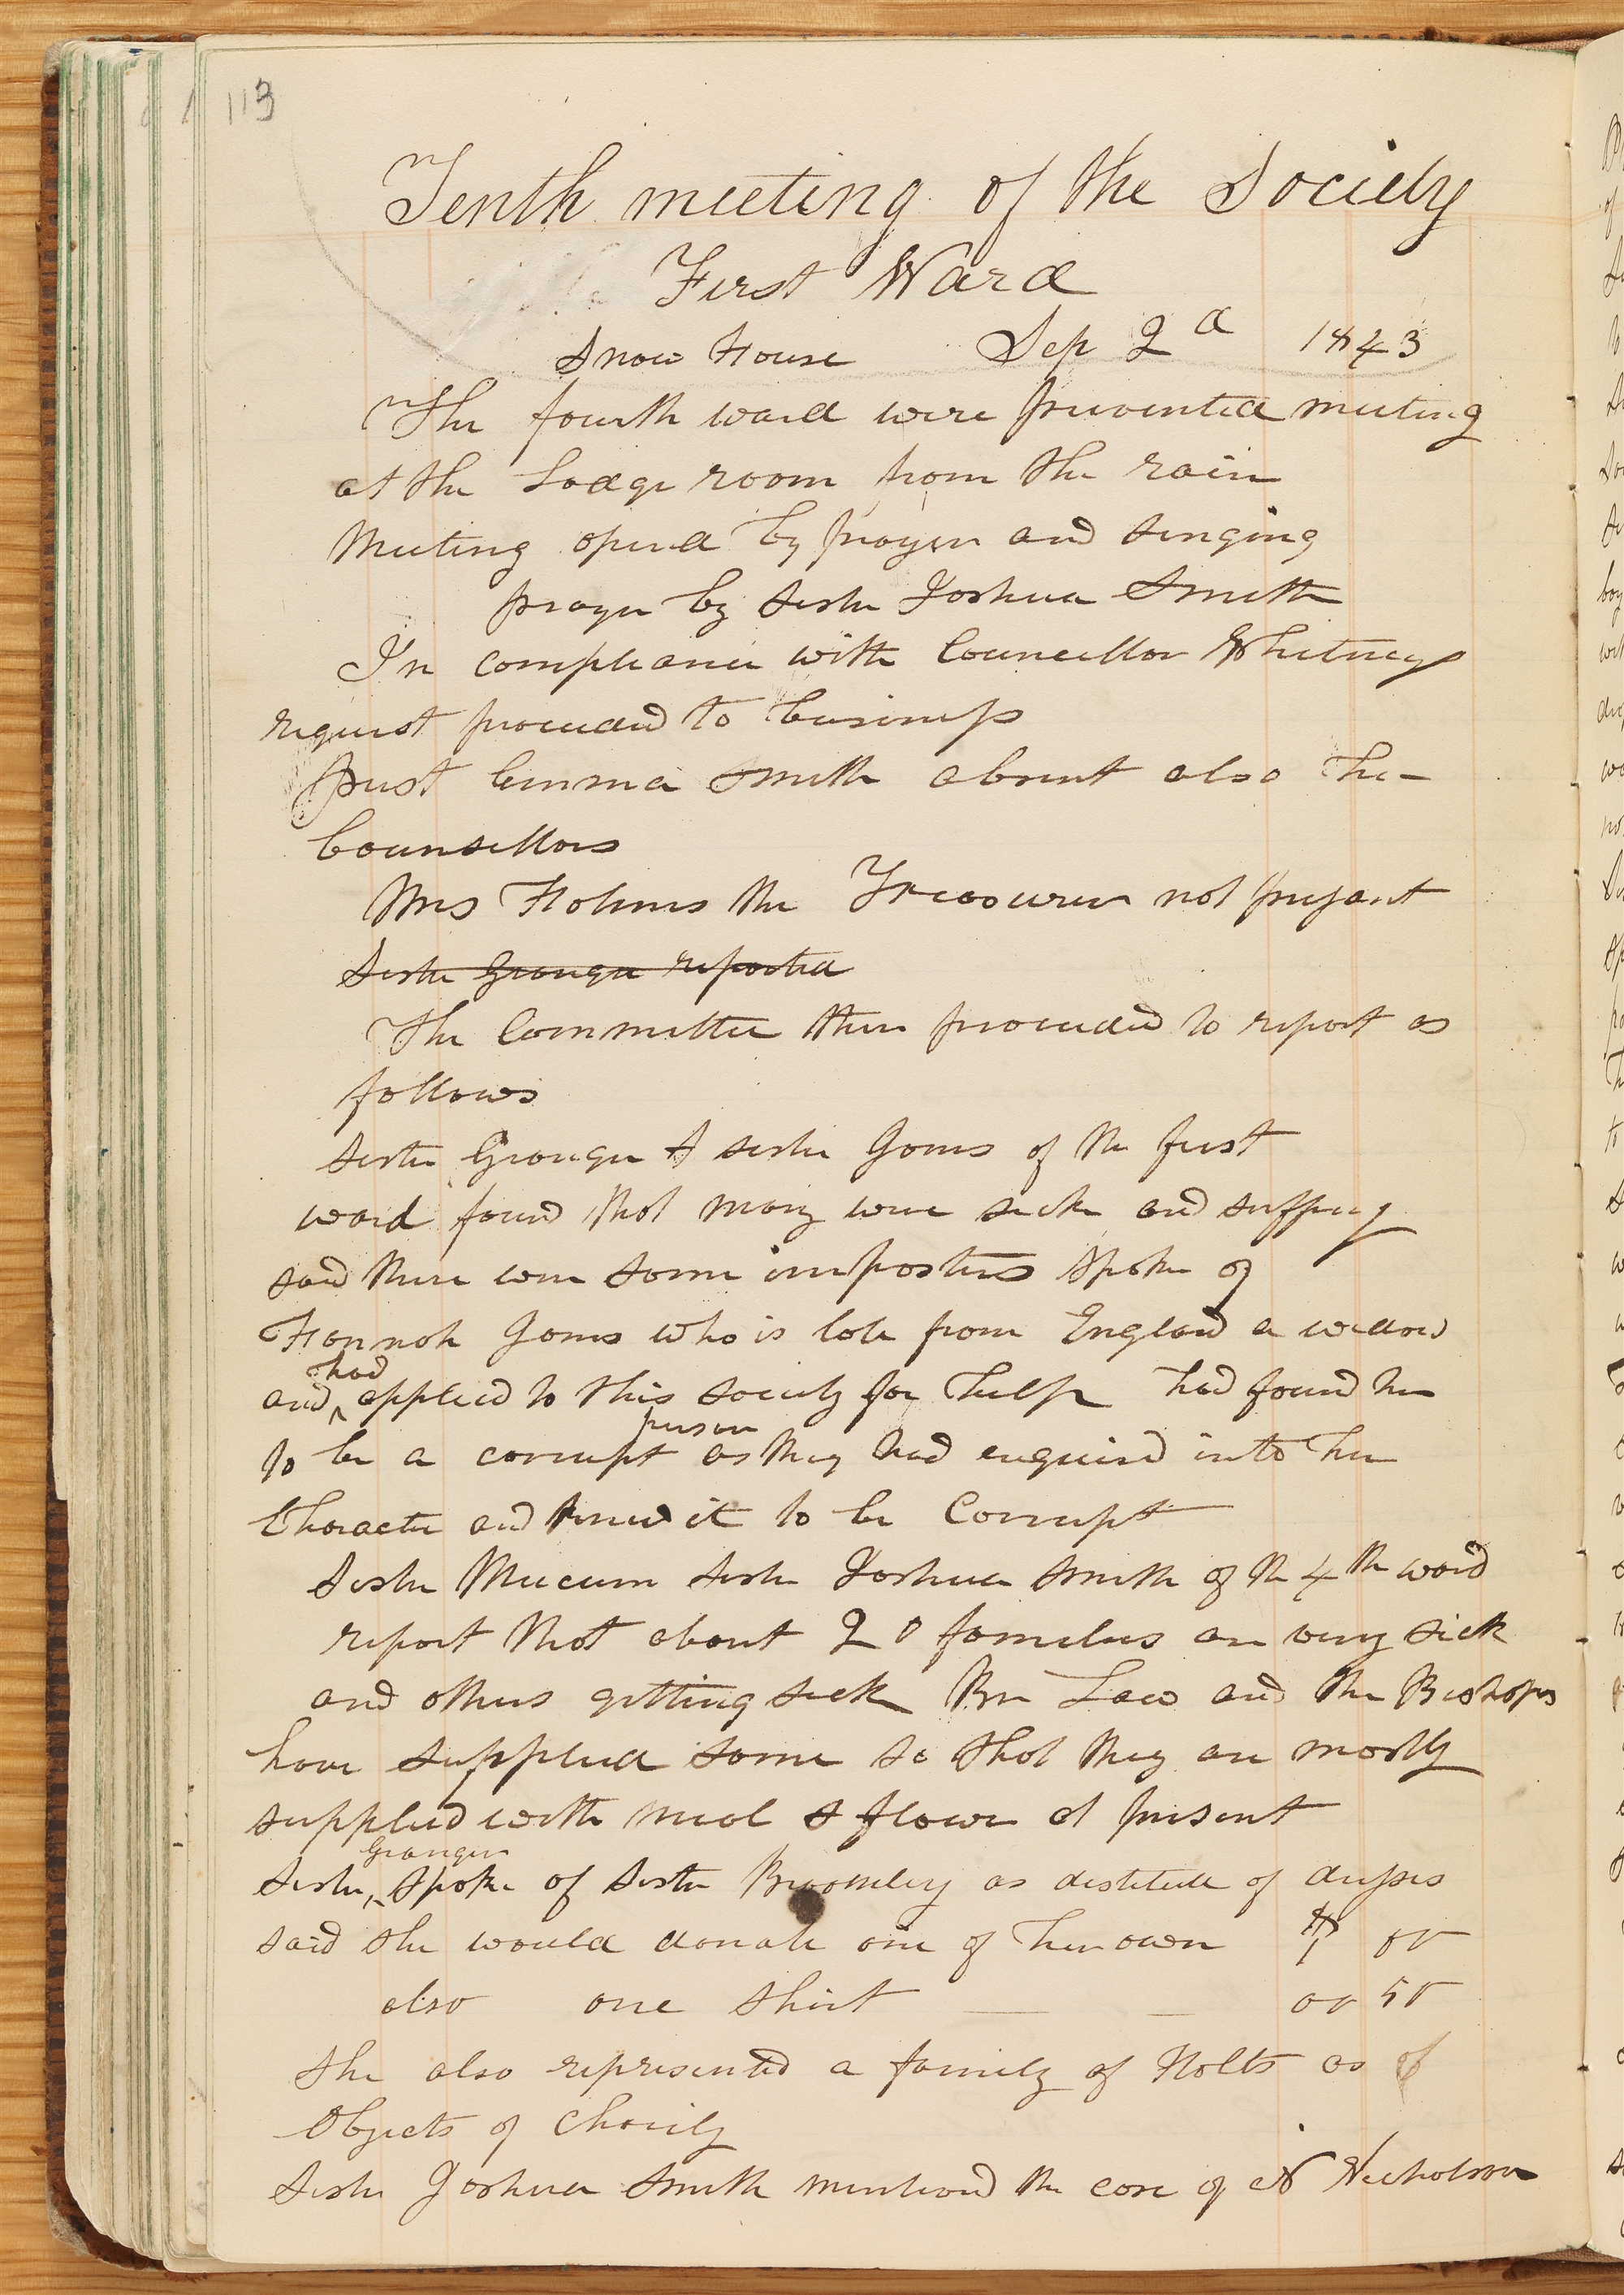 113
Tenth meeting of the Society
First Ward
Snow House Sep 2d 1843
The fourth ward were prevented meeting
at the Lodge room from the rain
Meeting opend by prayer and singing
prayer by sister Joshua Smith
In compliance with Councellor Whitneys
request proceeded to business
Prest Emma Smith absent also the
Counsellors
Mrs Holmes the Treasurer not present
Sister Granger reported
The Committee then proceeded to report as
follows
Sister Granger & sister Jones of the first
ward found that many were sick and suffring
said there were some imposters spoke of
Hannah Jones who is late from England a widow
and had applied to this society for help had found her
to be a corrupt person as they had enquired into her
Character and knew it to be Corrupt
Sister Mecum sister Joshua Smith of the 4th ward
report that about 20 families are very sick
and others getting sick Bro Law and the Bishops
have supplied some so that they are mostly
supplied with meal & flower at present
Sister Granger spoke of sister Broomley as destitute of dresses
said she would donate one of her own $1 00
also one shirt 00 50
she also represented a family of Holts as of
Objects of Charity
Sister Joshua Smith mentioned the case of N Nicholson